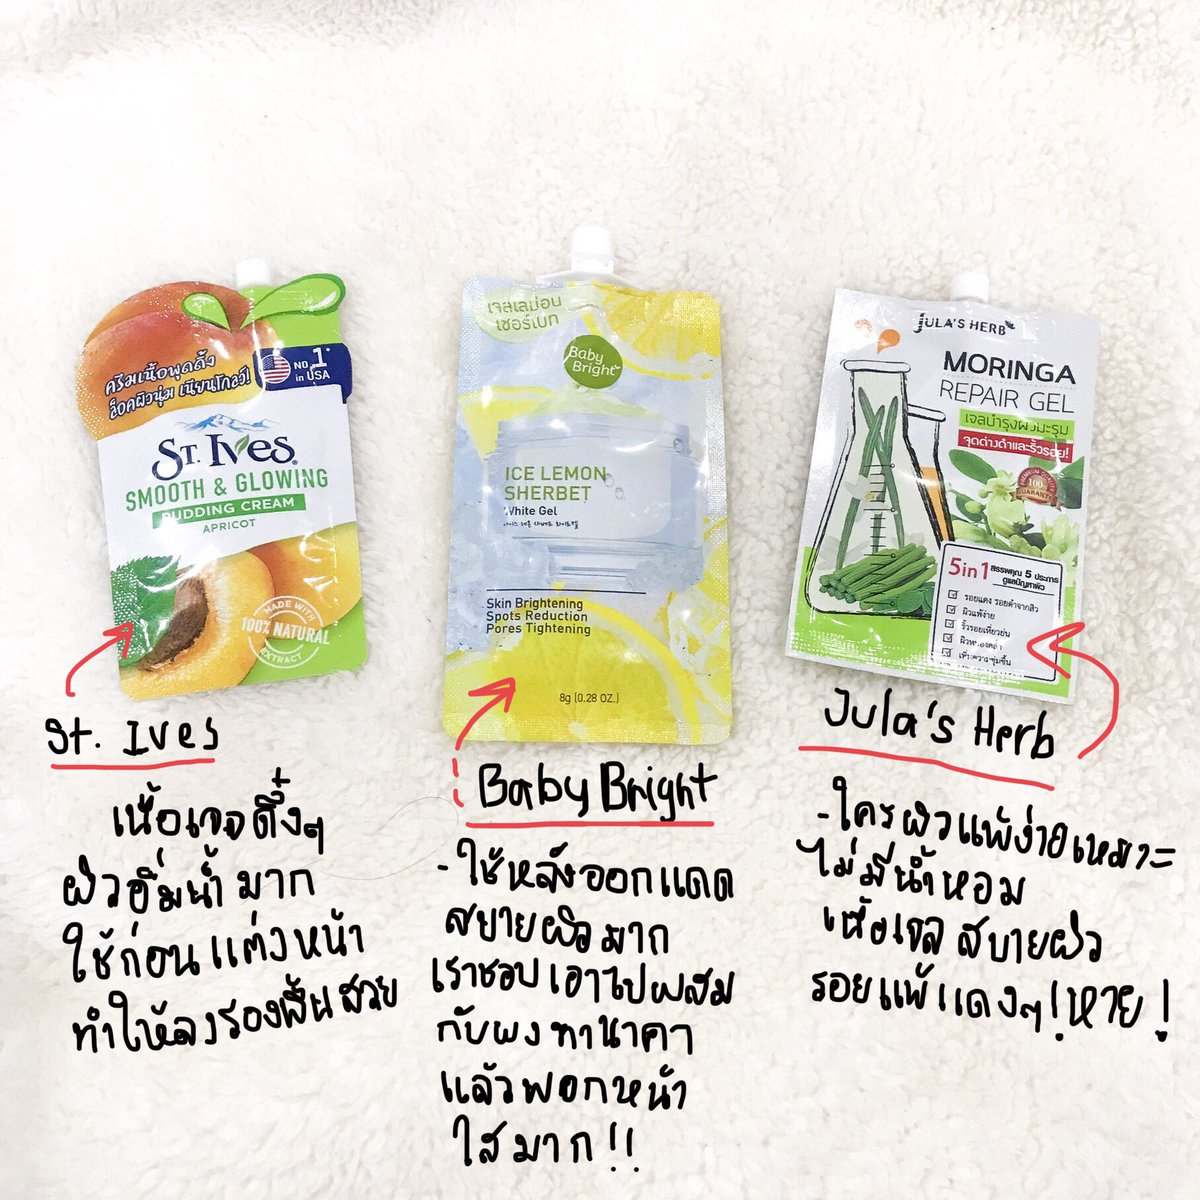 ครีมเนื้อพุดดิ้ง
ช็อคผิวนุ่ม เนียนโกลว์!
NO.1
in USA
ST. IVES
SMOOTH & GLOWING
PUDDING CREAM
APRICOT
MADE WITH
100% NATURAL
EXTRACT
เจลเลม่อน
เชอร์เบท
Baby
Bright
ICE LEMON
SHERBET
White Gel
아이스 레몬 샤베트 화이트젤
Skin Brightening
Spots Reduction
Pores Tightening
8g (0.28 OZ.)
JULA'S HERB
MORINGA
REPAIR GEL
เจลบำรุงผิวมะรุม
จุดด่างดำและริ้วรอย!
PREMIUM QUALITY
100%
GUARANTEE
5in1 สรรพคุณ 5 ประการ
ดูแลปัญหาผิว
รอยแดง รอยดำจากสิว
ผิวแพ้ง่าย
ริ้วรอยเหี่ยวย่น
ผิวหมองคล้ำ
เพิ่มความชุ่มชื้น
St. Ives
เนื้อเจลดึ๋งๆ
ผิวอิ่มน้ำมาก
ใช้ก่อนแต่งหน้า
ทำให้ลงรองพื้นสวย
Baby Bright
-ใช้หลังออกแดด
สบายผิวมาก
เราชอบเอาไปผสม
กับผงทานาคา
แล้วพอกหน้า
ใสมาก!!
Jula's Herb
-ใครผิวแพ้ง่ายเหมาะ
ไม่มีน้ำหอม
เนื้อเจล สบายผิว
รอยแพ้แดงๆ!หาย!